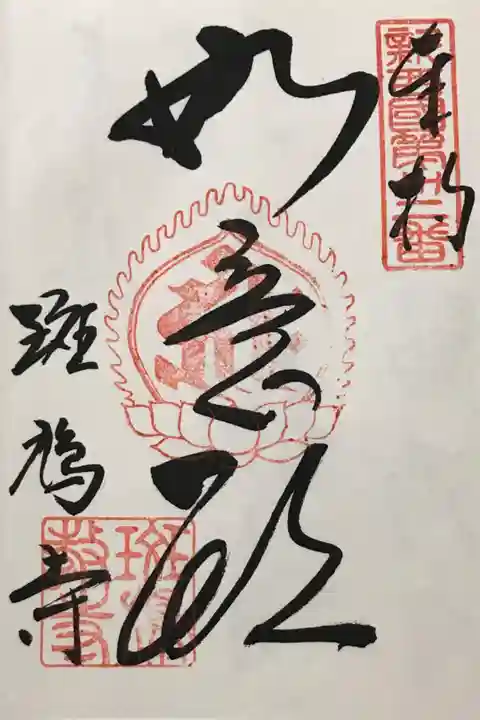 奉拝
新西国第三十二番
如意殿
斑鳩寺